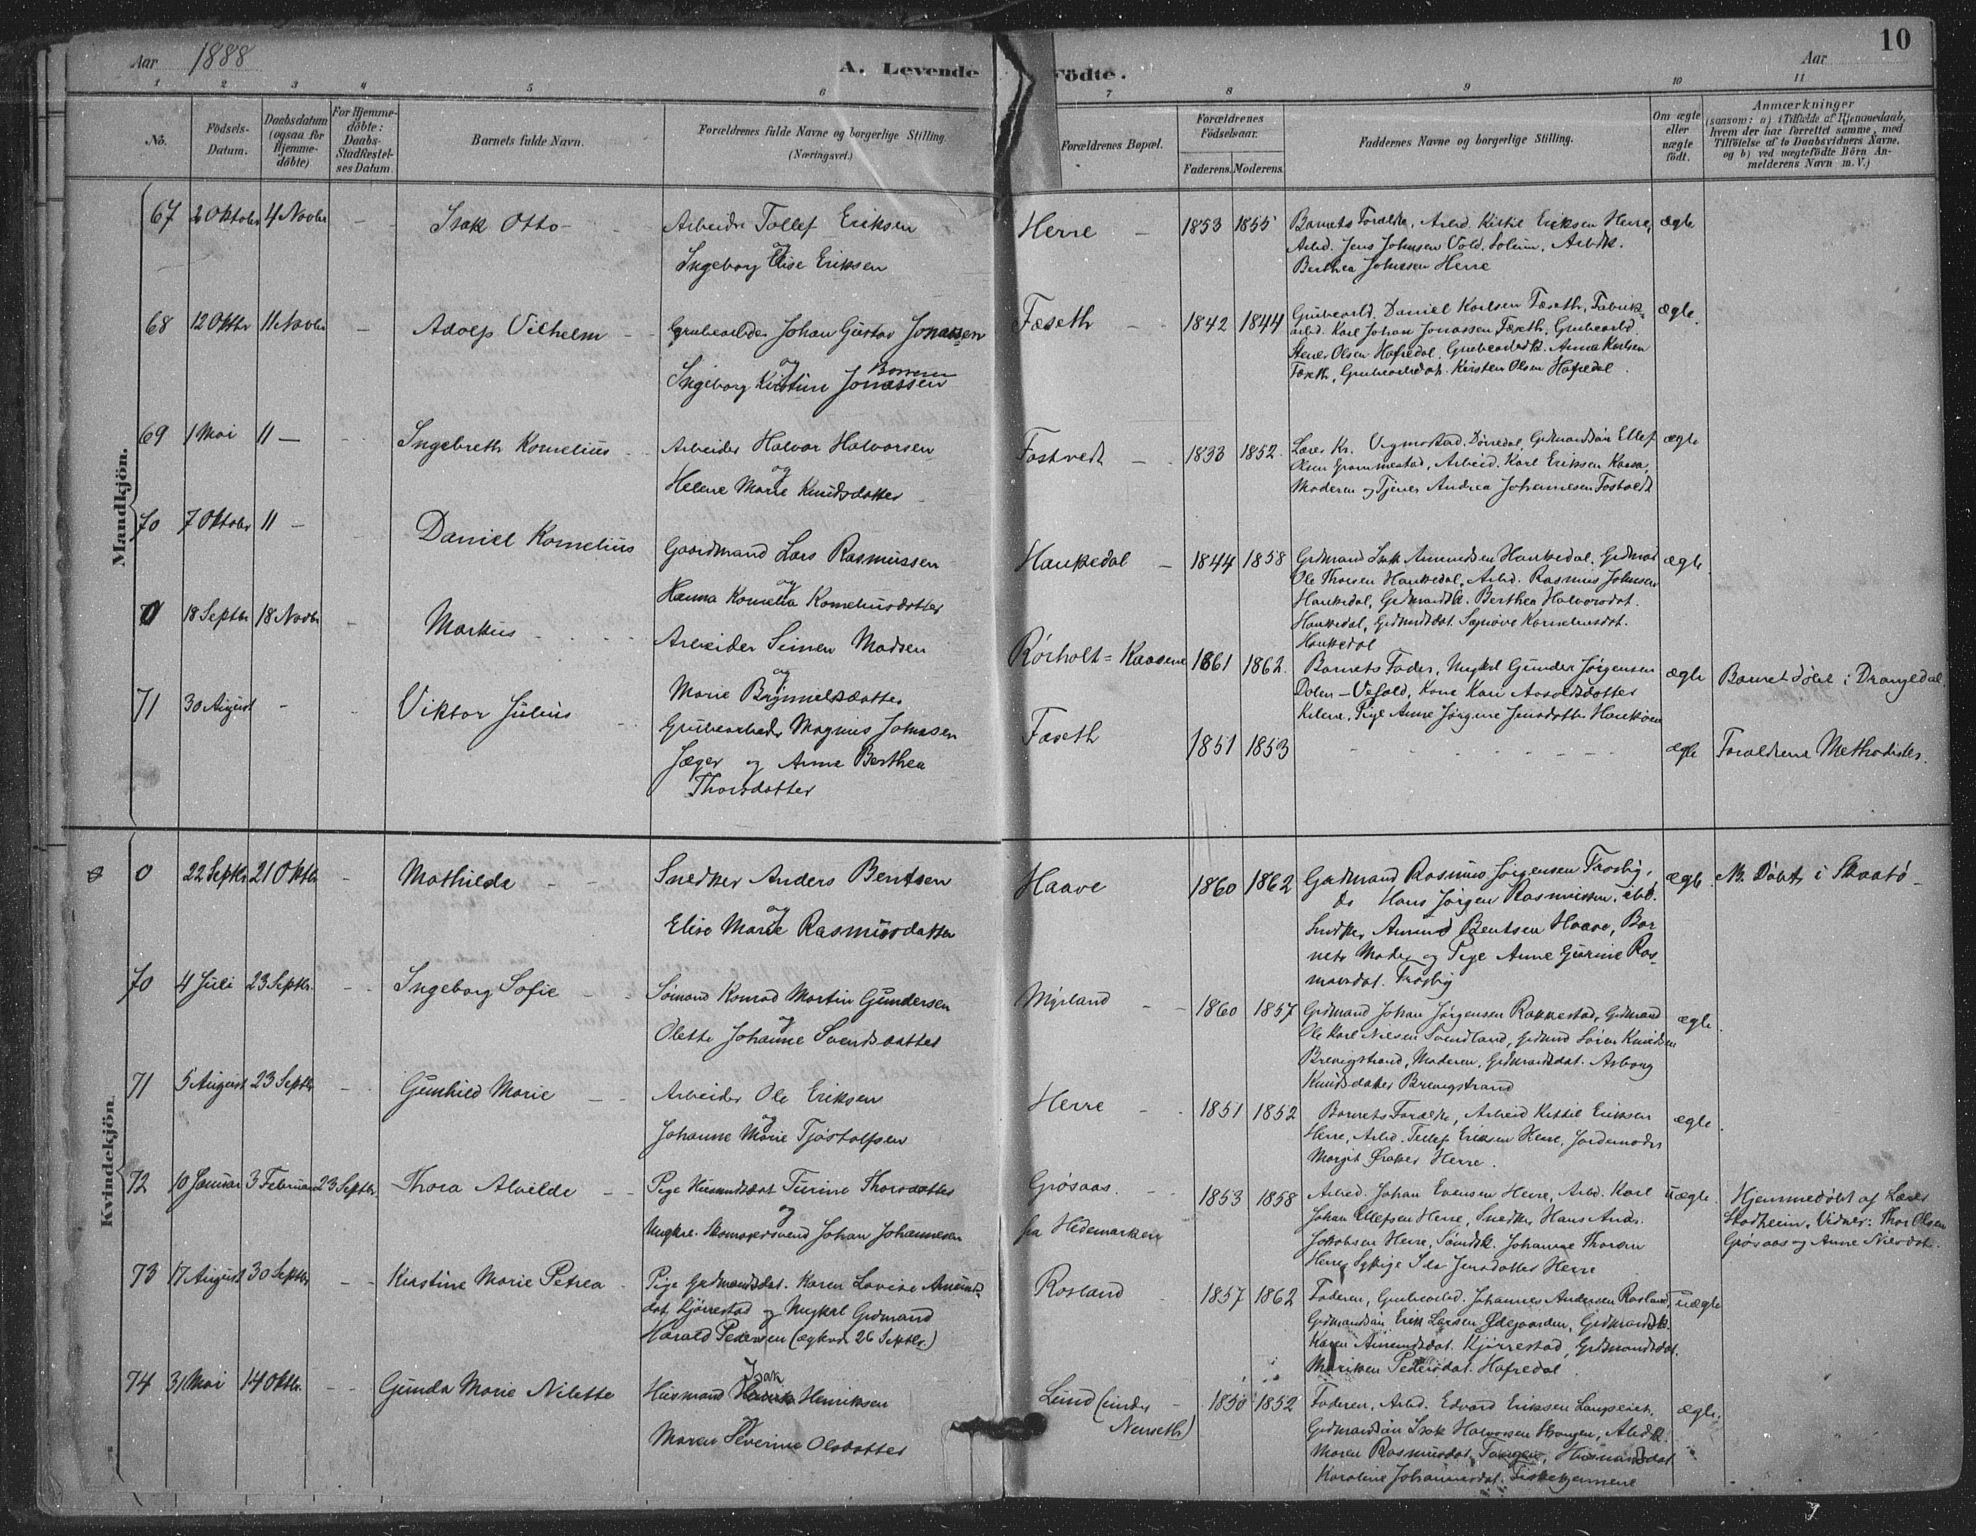 10
Aar 1888
A. Levende Födte.
Aar
1 2 3 4 5 6 7 8 9 10 11
No.
Födsels-
Datum.
Daabsdatum
(ogsaa for
Hjemme-
döbte)
For Hjemme-
döbte:
Daabs-
Stadfæstel-
ses Datum.
Barnets fulde Navn.
Forældrenes fulde Navne og borgerlige Stilling.
(Næringsvei.)
Forældrenes Bopæl.
Forældrenes
Födselsaar.
Faderens. Moderens.
Faddernes Navne og borgerlige Stilling.
Om ægte
eller
uægte
födt.
Anmærkninger
(saasom: a) i Tilfælde af Hjemmedaab,
hvem der har forrettet samme, med
Tilföielse af to Daabsvidners Navne,
og b) ved uægtefödte Börn An-
melderens Navn m. V.)
Mandkjön.
67 2 Oktobr 4 Novbr - Isak Otto -
Arbeider Tollef Eriksen
og
Ingeborg Elise Eriksen
Herre - 1853 1855
Barnets Forældre, Arbd. Kittil Eriksen Herre,
Arbd. Jens Johnsen Vold, Solum, Arbdk.
Berthea Johnsen Herre
ægte
68 12 Oktbr 11 Novbr - Adolf Vilhelm -
Grubearbeider Johan Gustav Jonassen
og
Ingeborg Kirstine Jonassen
Fæseth - 1842 1844
Grubearbd. Daniel Karlsen Fæseth, Fabrik-
arbd. Karl Johan Jonassen Fæseth, Grubearbd.
Olsen Hafredal, Grubearbdk. Anna Karlsen
Fæseth, Grubearbdat. Kirsten Olsen Hafredal.
ægte.
69 1 Mai 11 - Ingebreth Kornelius
Arbeider Halvor Halvorsen
og
Helene Marie Knudsdatter
Fostvedt - 1833 1852
Lærer Kr. Vigmostad, Dørdal, Grdmandssøn Ellef
Olsen Grummestad, Arbeid. Karl Eriksen Kaasa,
Moderen og Tjener Andrea Johannesen Fostvedt
ægte
70 7 Oktobr 11 - Daniel Kornelius
Gaardmand Lars Rasmussen
og
Hanna Kornelia Korneliusdatter
Haukedal - 1844 1858
Grdmand Isak Amundsen Haukedal, Grdmand
Ole Thorsen Haukedal, Arbd. Rasmus Johnsen
Haukedal, Grdmandsk. Berthea Halvorsdat.
Haukedal, Grdmandsdat. Korneliusdat.
Haukedal
ægte.
0 18 Septbr 18 Novbr - Markus -
Arbeider Simen Madsen
og
Marie Brynnelsdatter
Rörholt = Kaasene 1861 1862.
Barnets Fader, Ungkrl Gunder Jörgensen
Dolen - Vefald, Kone Kari Aasoldsdatter
Kilene, Pige Anne Jörgine Jensdatter
ægte
Barnet döbt i Drangedal.
71 30 August - - Viktor Julius -
Grubearbeider Magnus Johnsen
Jæger og Anne Berthea
Thorsdatter
Fæseth 1851 1853 - - - ægte
Forældrene Methodister.
Kvindekjön.
0 22 Septbr 21 Oktbr - Mathilde -
Snedker Anders Bentsen
og
Elise Marie Rasmusdatter
Haave 1860 1862
Grdmand Rasmus Jörgensen Trosbig,
do Hans Jörgen Rasmussen, ibd.
Snedker Amund Bentsen Haave, Bar-
nets Moder og Pige Anne Gurine Ras-
musdat. Trosbig
ægte.
N. Döbt i Skaatö -
70 4 Juli 23 Septbr. - Ingeborg Sofie -
Sømand Konrad Martin Gundersen
og
Olette Johanne Svendsdatter
Myrland - 1860 1857
Grdmand Johan Jörgensen Rakkestad, Grdmand
Ole Karl Nielsen Svendland, Grdmand Sören Knudsen
Brevigstrand, Moderen, Grdmandsdat. Asborg
Knudsdatter Brevigstrand
ægte.
71 5 August 23 Septbr - Gunhild Marie -
Arbeider Ole Eriksen
og
Johanne Marie Tjöstolfsen
Herre - 1851 1852
Barnets Forældre, Arbeid Kittil Eriksen
Herre, Arbd. Tellef Eriksen Herre, Jordemoder
Margit Ørakær Herre.
ægte.
72 10 Januar 3 Februar 23 Septbr. Thora Alvilde -
Pige Husmandsdat Turine Thorsdatter
og
Ungkr. Skomagersvend Johan Johannesen
Grösaas. -
fra Hedemarken
1853 1858
Arbeid. Johan Evensen Herre, Arbd. Karl
Johan Ellefsen Herre, Snedker Hans Andr.
Jakobsen Herre, Sömdsk. Johanne Thoresen
Herre, Sypige Ida Jensdatter Herre
uægte
Hjemmedöbt af Lærer
Stadheim. Vidner: Thor Olsen
Grösaas og Anne Nilsdat.
73 17 August 30 Septbr - Kirstine Marie Petrea
Pige Grdmandsdat. Karen Lovise Amunds-
dat. Kjörrestad og Ungkrl Grdmand
Harald Pedersen (ægtevd. 26 Septbr.)
Rosland 1857 1862
Faderen, Grubearbd. Johannes Andersen Rosland,
Grdmandssön Erik Larsen Ødegaarden, Grdmandsk.
Karen Amundsdat. Kjörrestad, Grdmandsdat.
Mariken Pedersdat. Hafredal.
uægte
74 31 Mai 14 Oktbr. - Gunda Marie Nilette
Isak
Husmand Henriksen
og
Maren Severine Olsdatter
Lund (under
Nenseth)
1850 1852
Faderen, Arbd. Edvard Eriksen Langseiet,
Grdmandssön Isak Halvorsen Haugen, Arbdk.
Maren Rasmusdat. Husmandsdat.
Karoline Johannesdat. Fiskekjernene
ægte.